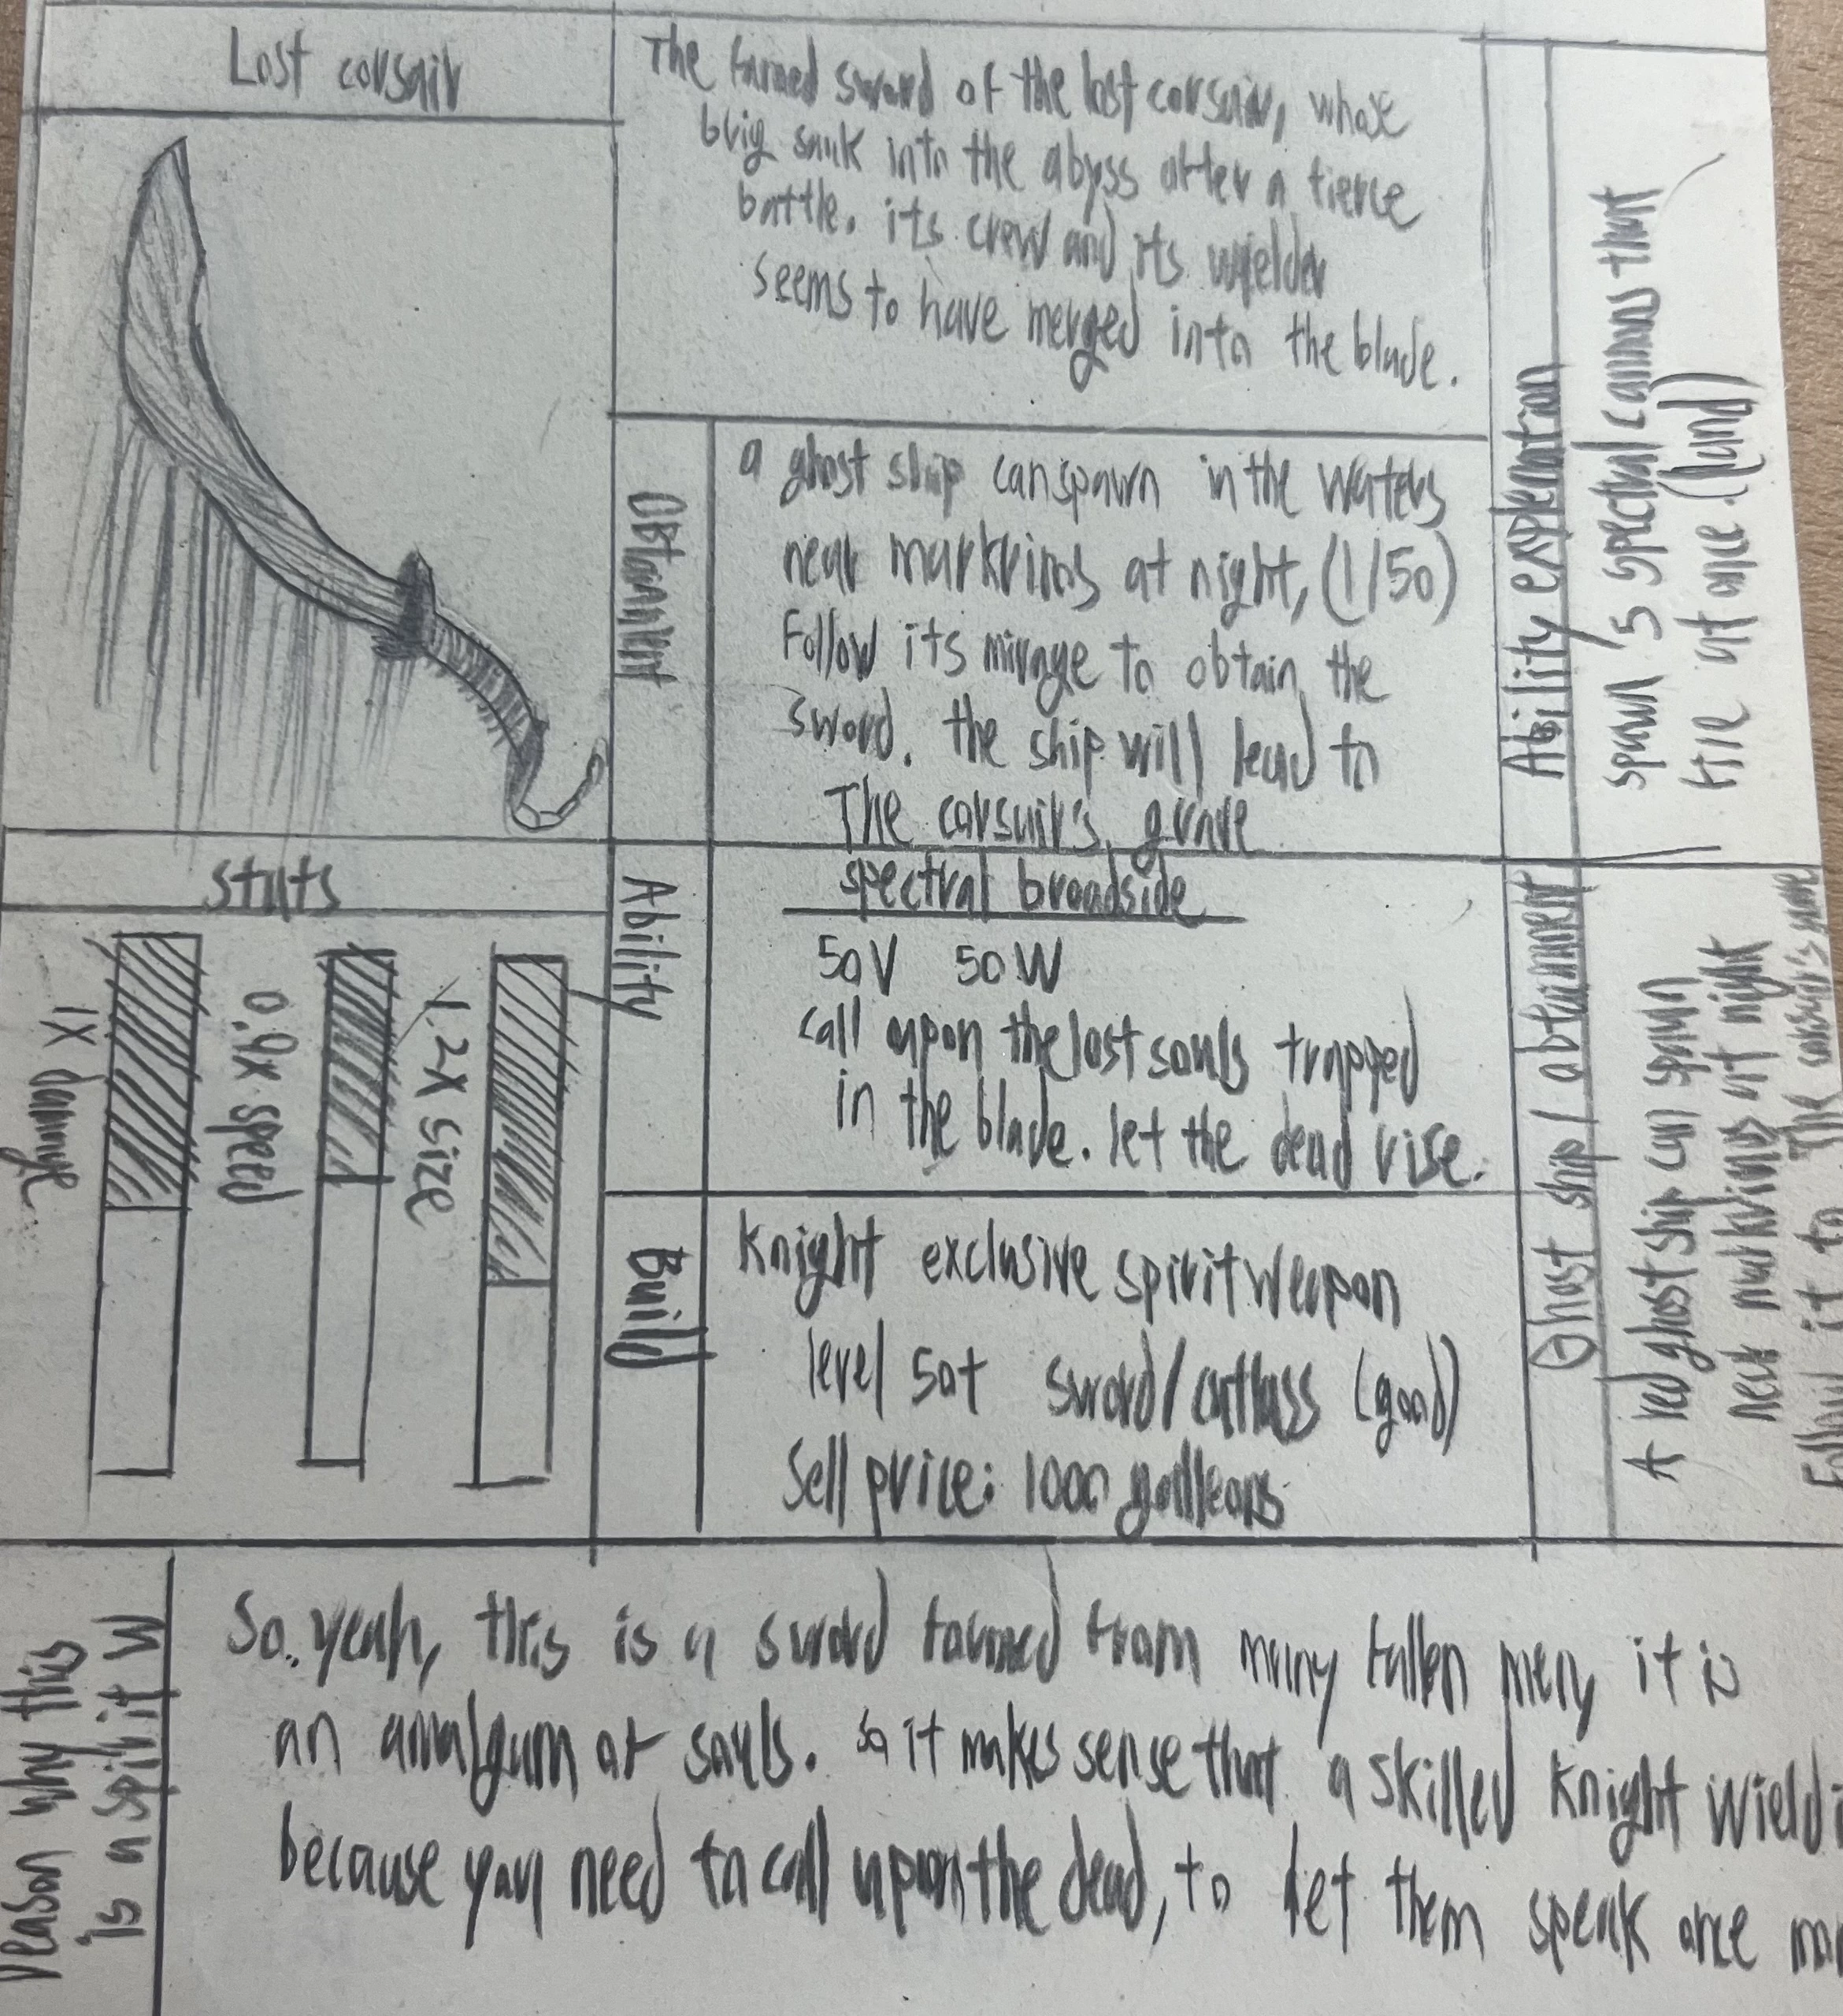 Lost corsair
The famed sword of the lost corsair, whose
brig sank into the abyss after a fierce
battle. its crew and its wielder
seems to have merged into the blade.
Obtainment
a ghost ship can spawn in the waters
near markrinos at night, (1/50)
Follow its mirage to obtain the
sword. the ship will lead to
The corsair's grave
Ability
spectral broadside
50V 50W
call upon the lost souls trapped
in the blade. let the dead rise.
Build
Knight exclusive spirit weapon
level 50+ sword/cutlass (good)
Sell price: 1000 galleons
stats
1.2x size
0.9x speed
1x damage
Ability explenation
spawn 5 spectral cannons that
fire at once. (land)
Ghost ship / obtainment
A red ghost ship can spawn
near markrinos at night
Follow it to The corsair's
reason why this
is a spirit W
So.. yeah, this is a sword formed from many fallen men, it is
an amalgum of souls. so it makes sense that a skilled knight wield
because you need to call upon the dead, to let them speak once